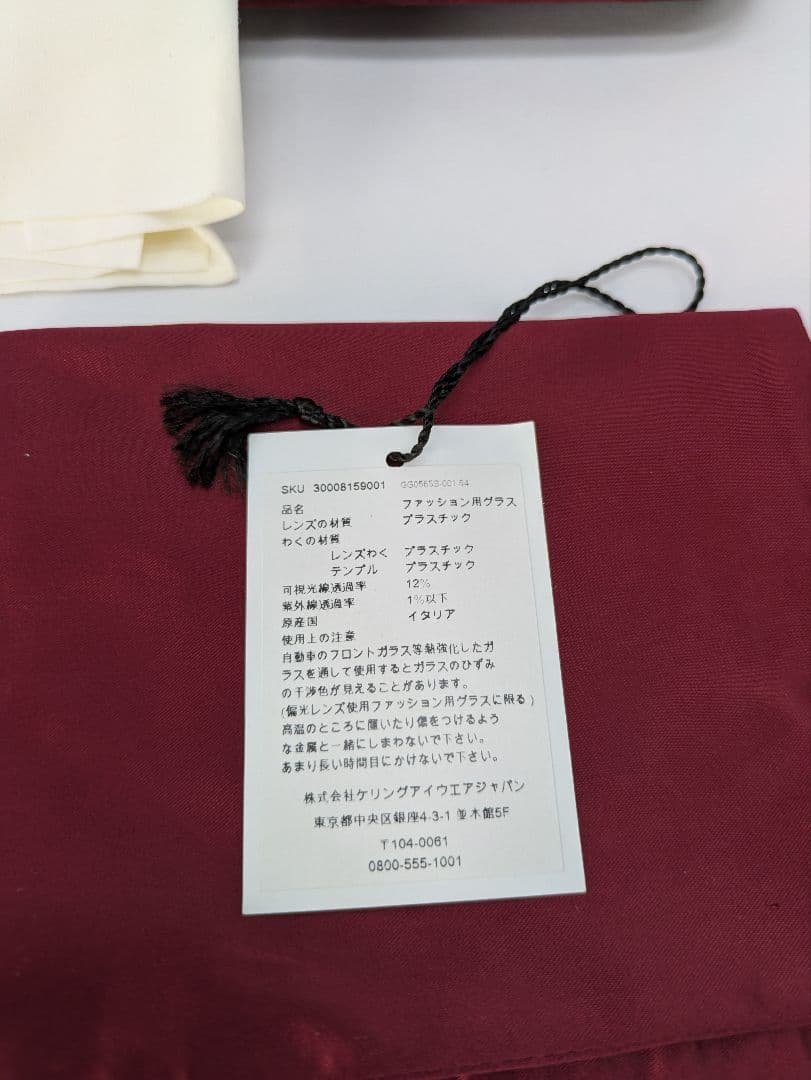 SKU 30008159001 GG0565S-001 54
品名 ファッション用グラス
レンズの材質 プラスチック
わくの材質
レンズわく プラスチック
テンプル プラスチック
可視光線透過率 12%
紫外線透過率 1%以下
原産国 イタリア
使用上の注意
自動車のフロントガラス等熱強化したガ
ラスを通して使用するとガラスのひずみ
の干渉色が見えることがあります。
(偏光レンズ使用ファッション用グラスに限る)
高温のところに置いたり傷をつけるよう
な金属と一緒にしまわないで下さい。
あまり長い時間目にかけないで下さい。
株式会社ケリングアイウエアジャパン
東京都中央区銀座4-3-1 並木館5F
〒104-0061
0800-555-1001